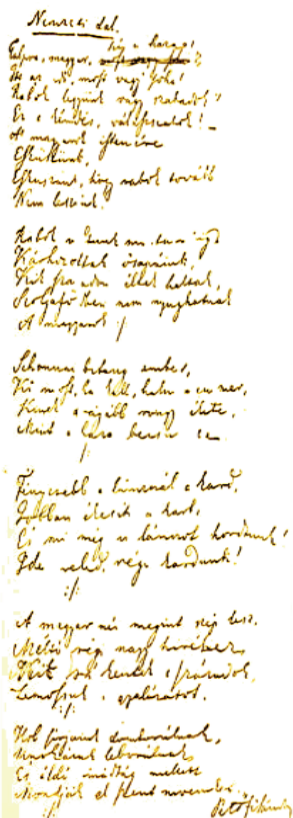 Nemzeti dal.
Talpra magyar, hí a haza!
Itt az idő, most vagy soha!
Rabok legyünk vagy szabadok?
Ez a kérdés, válasszatok! –
A magyarok istenére
Esküszünk,
Esküszünk, hogy rabok tovább
Nem leszünk.
Rabok voltunk mostanáig
Kárhozottak ősapáink,
Kik szabadon éltek haltak,
Szolgaföldben nem nyughatnak
A magyarok :/:
Sehonnai bitang ember,
Ki most, ha kell, halni nem mer,
Kinek drágább rongy élete,
Mint a haza becsülete
:/:
Fényesebb a láncznál a kard,
Jobban ékesíti a kart,
És mi még is lánczot hordunk!
Ide veled, régi kardunk!
:/:
A magyar név megint szép lesz,
Méltó régi nagy hiréhez,
Mit rá kentek a századok,
Lemossuk a gyalázatot.
:/:
Hol sírjaink domborulnak,
Unokáink leborulnak,
És áldó imádság mellett
Mondják el szent neveinket.
:/:
Petőfi Sándor